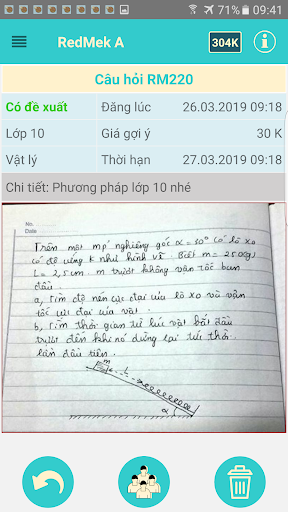 71% 09:41
RedMek A
304K
Câu hỏi RM220
Có đề xuất Đăng lúc 26.03.2019 09:18
Lớp 10 Giá gợi ý 30 K
Vật lý Thời hạn 27.03.2019 09:18
Chi tiết: Phương pháp lớp 10 nhé
No.
Date
Trên một mp nghiêng góc α = 30° có lò xo
có độ cứng k như hình vẽ. Biết m = 250(g)
L = 2,5 cm. m trượt không vận tốc ban
đầu.
a, Tìm độ nén cực đại của lò xo và vận
tốc cực đại của vật.
b, tìm thời gian từ lúc vật bắt đầu
trượt đến khi nó dừng lại tức thời
lần đầu tiên.
m
L
α